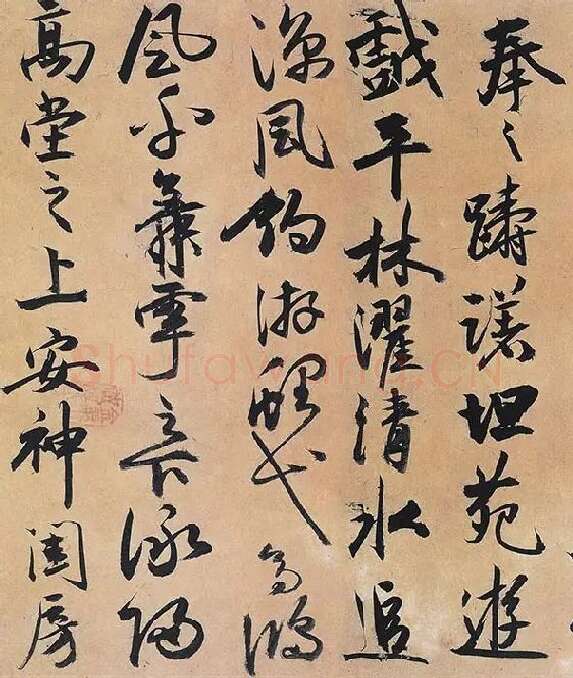 奉之躊躇畦苑遊
戲平林濯清水追
涼風釣游鯉弋高鴻
風乎舞雩之下詠歸
高堂之上安神閨房